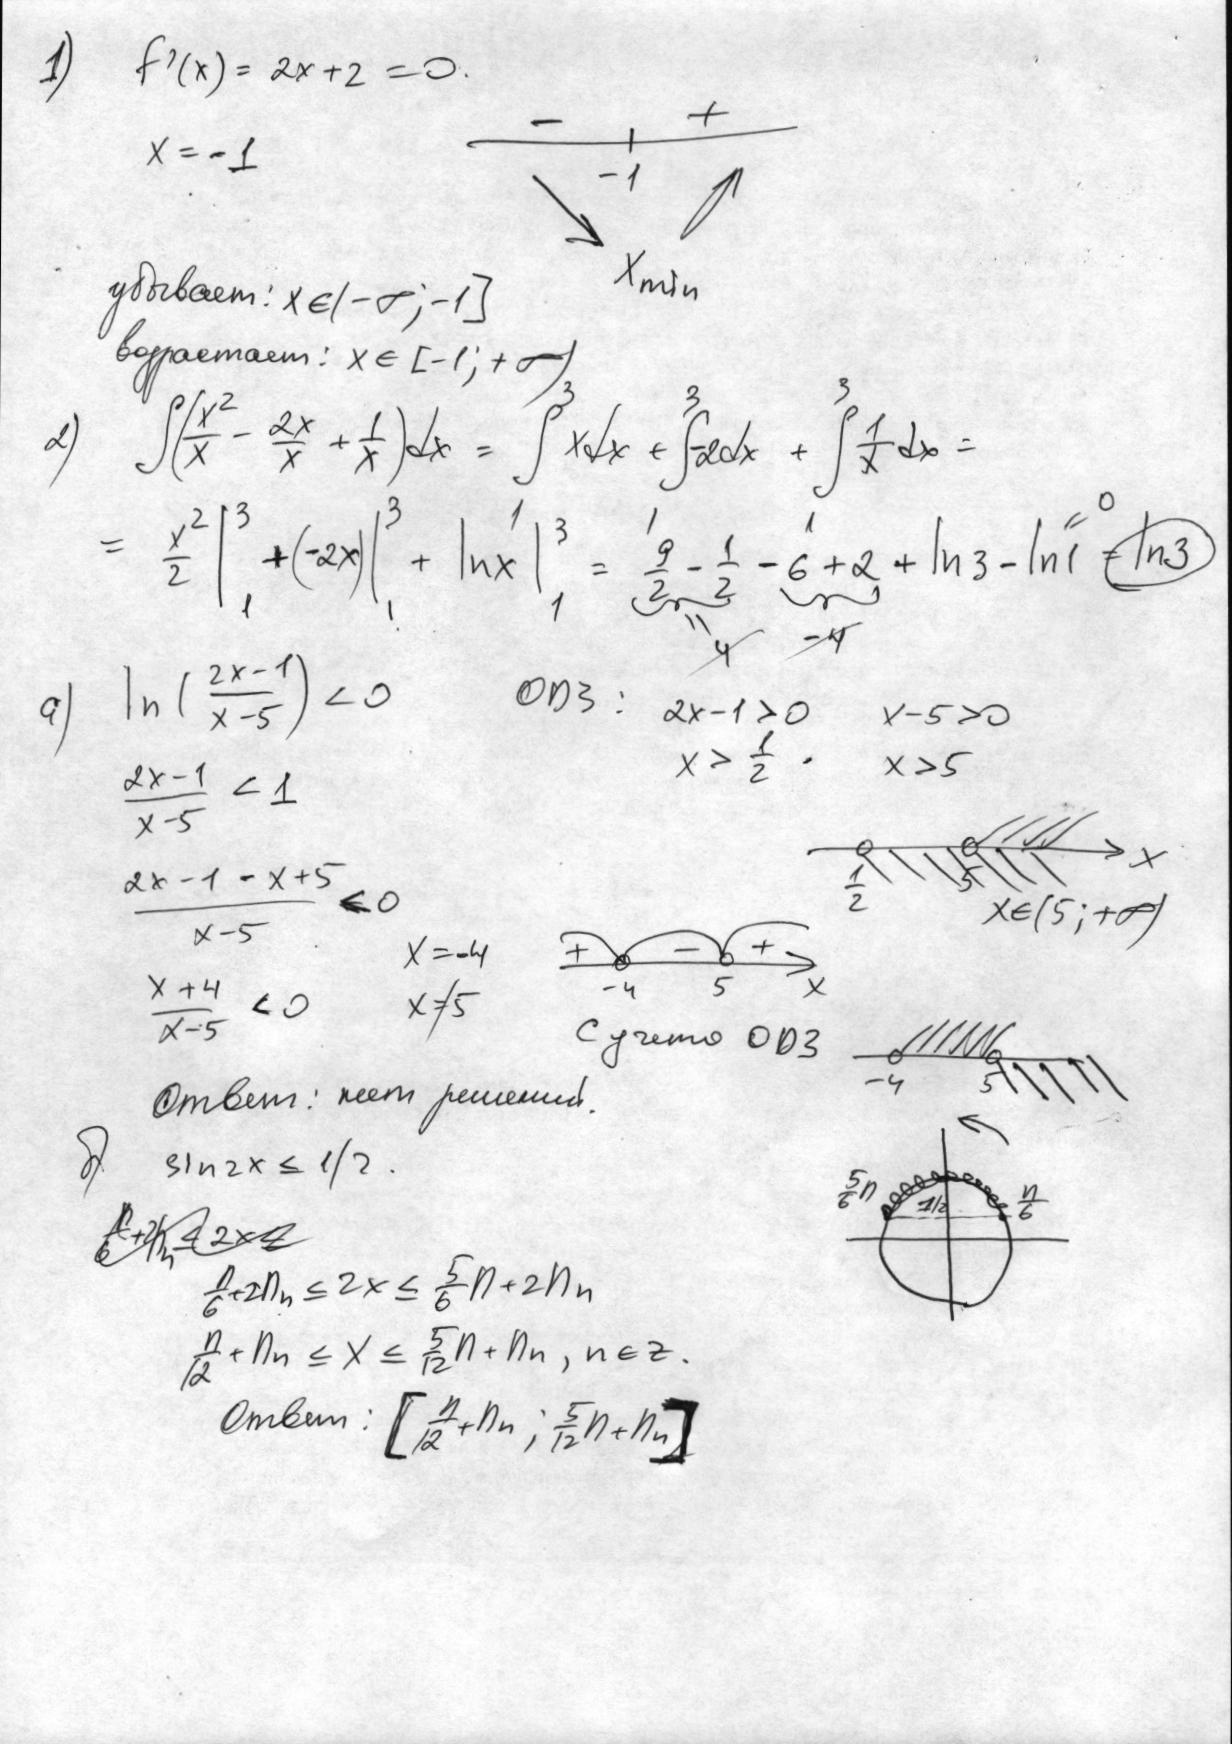 1) f'(x) = 2x+2 = 0.
- +
x = -1
-1
Xmin
убывает: x∈(-∞; -1]
возрастает: x∈[-1; +∞)
2) ∫(x²/x - 2x/x + 1/x)dx = ∫³₁ xdx + ∫³₁ -2dx + ∫³₁ 1/x dx =
= x²/2 |³₁ + (-2x)|³₁ + ln x |³₁ = 9/2 - 1/2 - 6 + 2 + ln3 - ln1 = ln3
= 0
4 -4
а) ln(2x-1/x-5) < 0 ОДЗ: 2x-1>0 x-5>0
x > 1/2 . x>5
2x-1/x-5 < 1
1/2 5 x
x∈(5; +∞)
2x-1-x+5/x-5 < 0
x = -4
+ - +
-4 5 x
x+4/x-5 < 0 x≠5
С учето ОДЗ
-4 5
Ответ: нет решений.
б) sin2x ≤ 1/2.
5/6π 1/2 π/6
π/6+2πn ≤ 2x ≤
π/6+2πn ≤ 2x ≤ 5/6π+2πn
π/12+πn ≤ x ≤ 5/12π+πn, n∈z.
Ответ: [π/12+πn; 5/12π+πn]